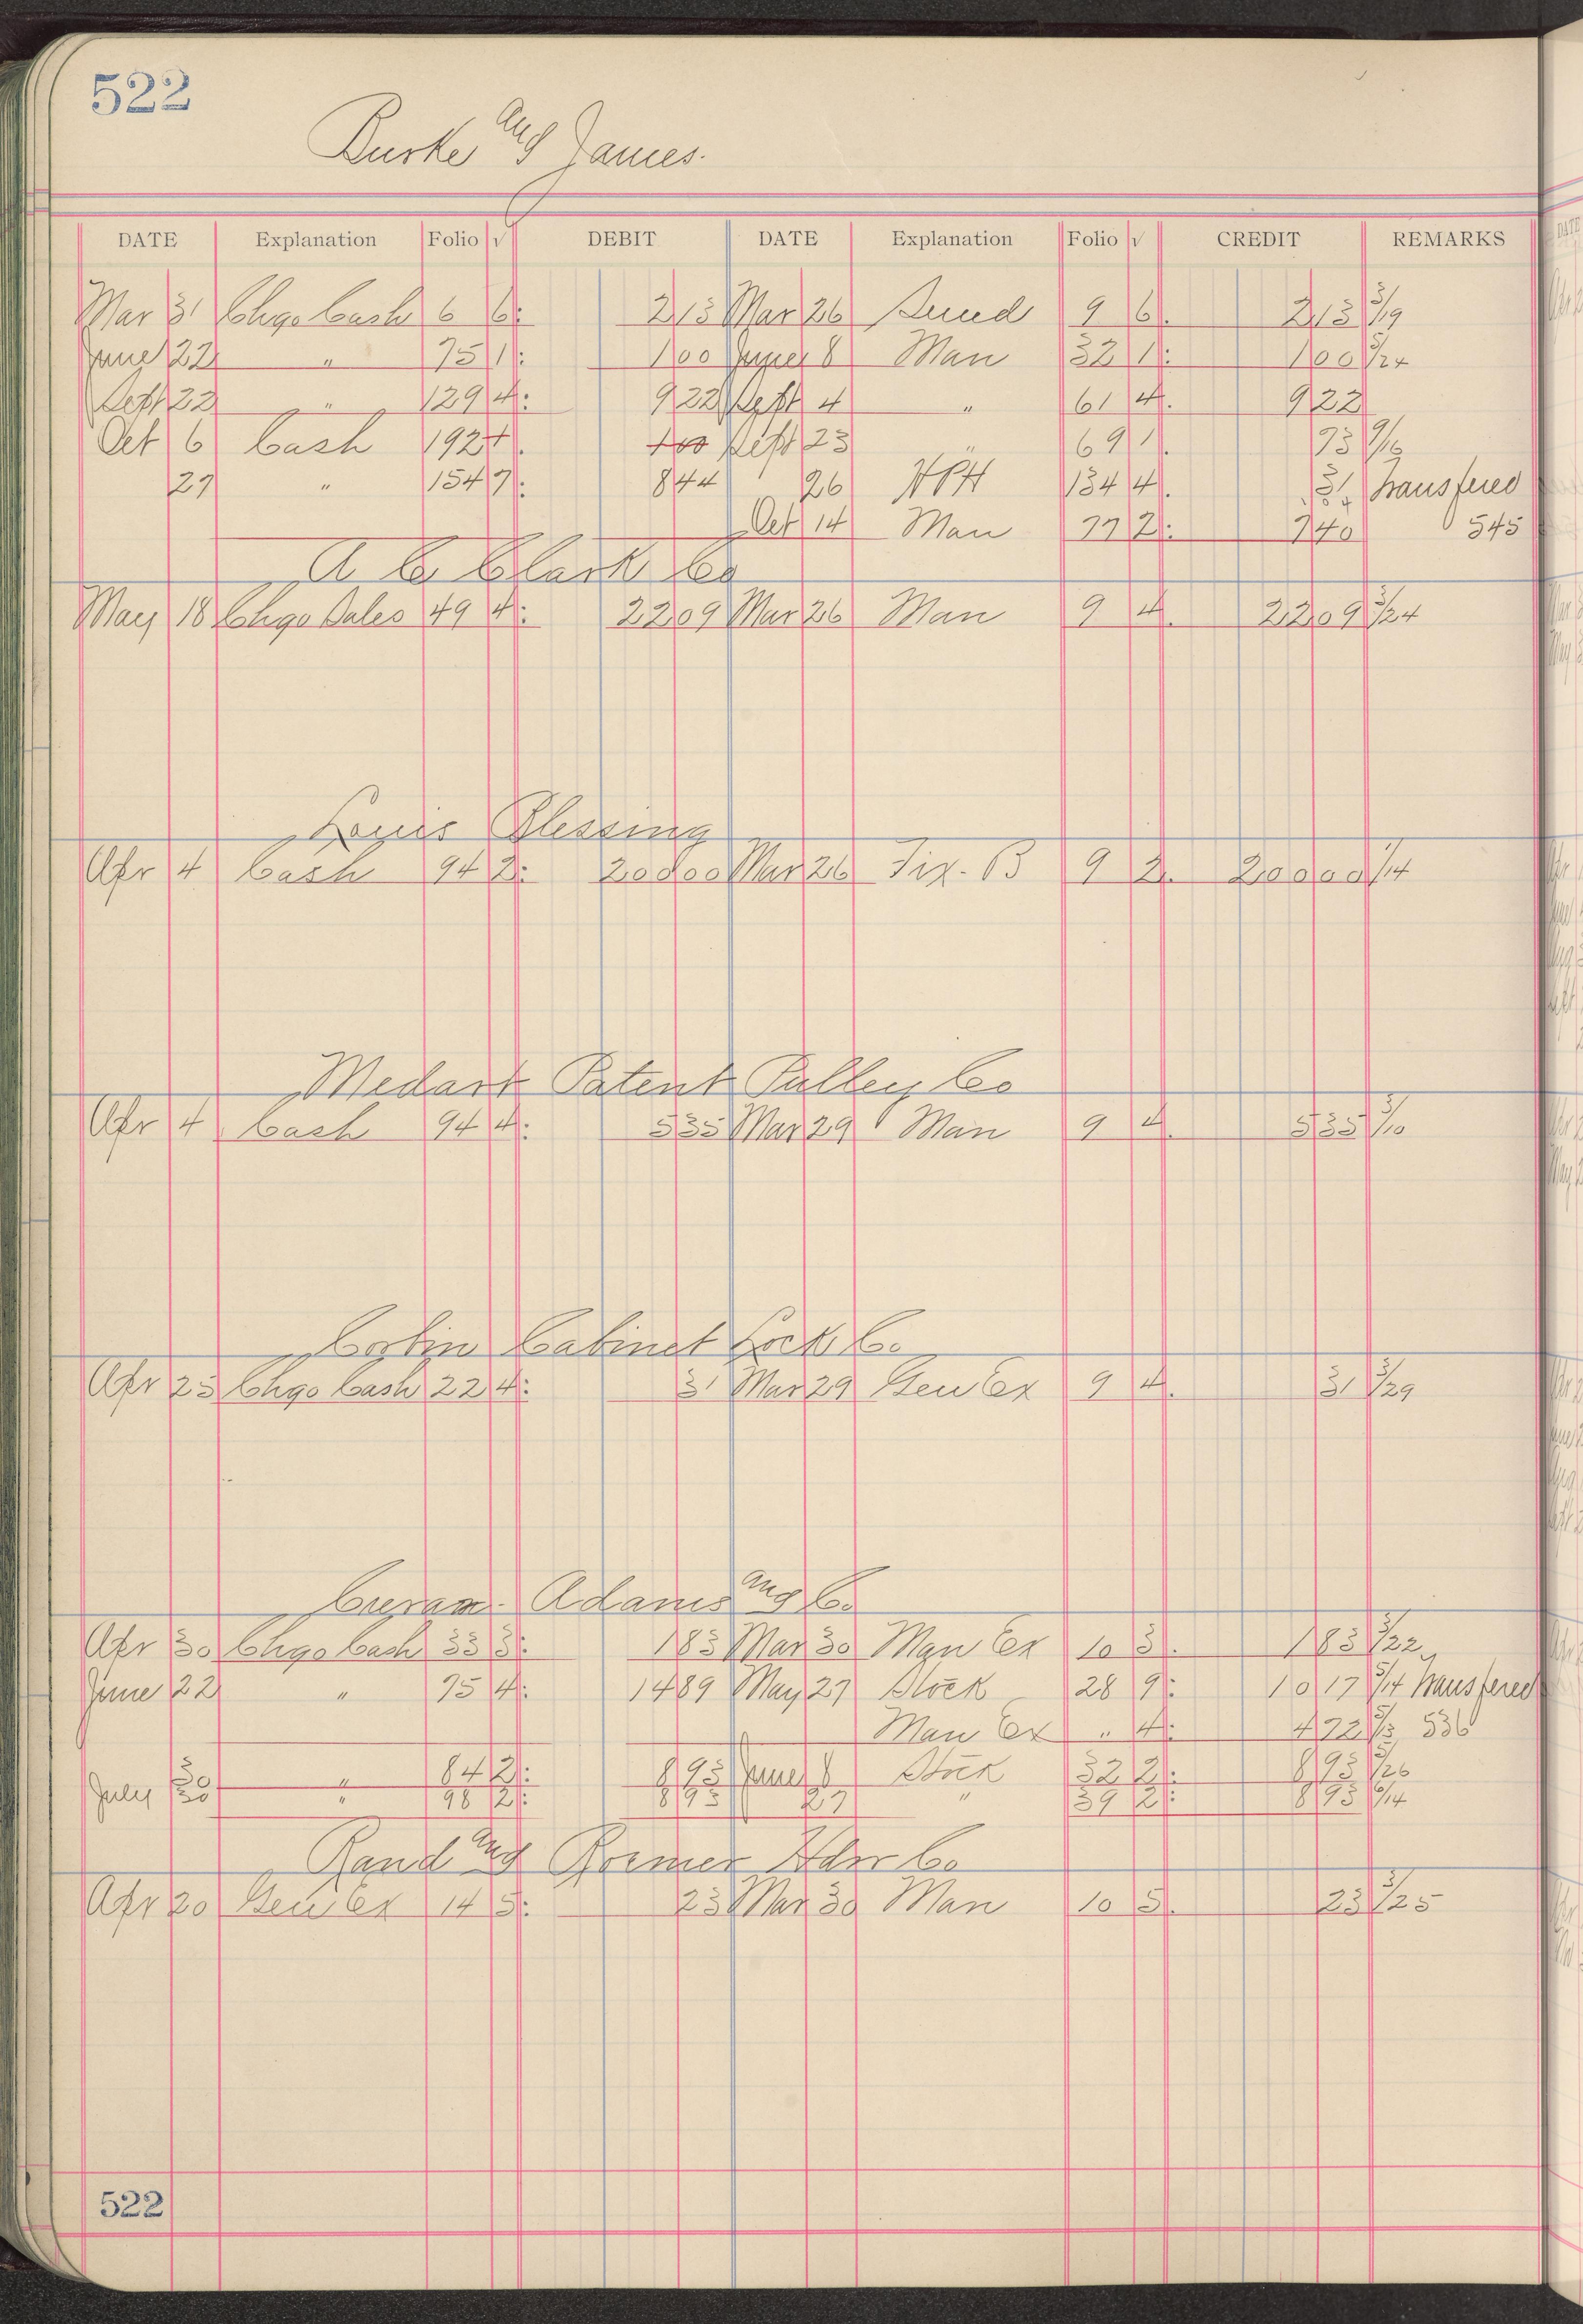 522
Burke and James.
DATE Explanation Folio √ DEBIT DATE Explanation Folio √ CREDIT REMARKS
Mar 31 Chgo Cash 6 6 213 Mar 26 Sund 9 6 213 3/19
June 22 " 75 1 100 June 8 Man 32 1 100 5/24
Sept 22 " 129 4 922 Sept 4 " 61 4 922
Oct 6 Cash 192 100 Sept 23 " 69 1 73 9/16
27 " 154 7 844 26 134 4 31 Transfered
Oct 14 Man 77 2 740 545
A C Clark Co
May 18 Chgo Sales 49 4 2209 Mar 26 Man 9 4 2209 3/24
Louis Blessing
Apr 4 Cash 94 2 20000 Mar 26 Fix. B 9 2 20000 1/14
Medart Patent Pulley Co
Apr 4 Cash 94 4 535 Mar 29 Man 9 4 535 3/10
Corbin Cabinet Lock Co
Apr 25 Chgo Cash 22 4 31 Mar 29 Gen Ex 9 4 31 3/29
Curran Adams and Co
Apr 30 Chgo Cash 33 3 183 Mar 30 Man Ex 10 3 183 3/22
June 22 " 75 4 1489 May 27 Stock 28 9 1017 5/14 Transfered
Man Ex " 4 472 5/3 536
30 " 84 2 893 June 8 Stock 32 2 893 5/26
July 30 " 98 2 893 27 " 39 2 893 6/14
Rand and Co
Apr 20 Gen Ex 14 5 23 Mar 30 Man 10 5 23 3/25
522